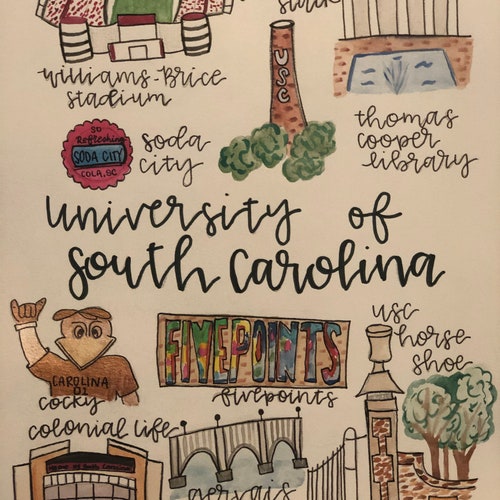 stack
USC
williams-Brice
stadium
thomas
cooper
library
so
Refreshing
SODA CITY
COLA, SC
soda
city
university of
south carolina
usc
horse
shoe
FIVEPOINTS
fivepoints
CAROLINA
01
cocky
colonial life
gervais